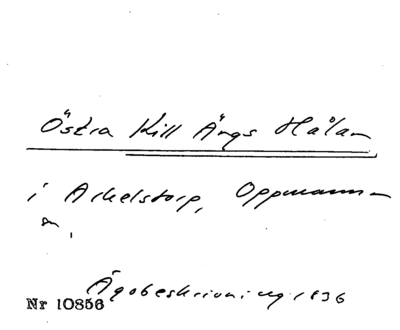 Östra Kill Ängs Hålan
i Arkelstorp, Oppmanna
sn.
Ägobeskrivning 1836
Nr 10856